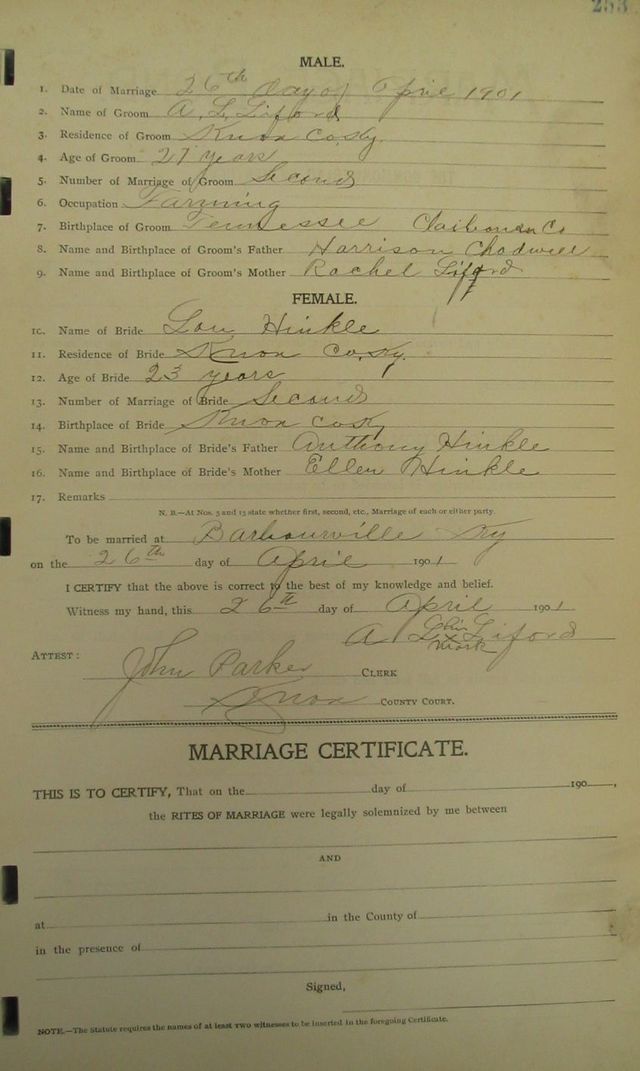 253
MALE.
1. Date of Marriage 26th day of April 1901
2. Name of Groom A. L. Liford
3. Residence of Groom Knox Co, Ky.
4. Age of Groom 27 years
5. Number of Marriage of Groom Second
6. Occupation Farming
7. Birthplace of Groom Tennessee Claiborne Co
8. Name and Birthplace of Groom's Father Harrison Chadwell
9. Name and Birthplace of Groom's Mother Rachel Liford
FEMALE.
10. Name of Bride Lou Hinkle
11. Residence of Bride Knox Co, Ky.
12. Age of Bride 23 years
13. Number of Marriage of Bride Second
14. Birthplace of Bride Knox Co Ky
15. Name and Birthplace of Bride's Father Anthony Hinkle
16. Name and Birthplace of Bride's Mother Ellen Hinkle
17. Remarks
N. B.—At Nos. 5 and 13 state whether first, second, etc., Marriage of each or either party.
To be married at Barbourville Ky
on the 26th day of April 1901
I CERTIFY that the above is correct to the best of my knowledge and belief.
Witness my hand, this 26th day of April 1901
A L his x mark Liford
ATTEST:
John Parker CLERK
Knox COUNTY COURT.
MARRIAGE CERTIFICATE.
THIS IS TO CERTIFY, That on the day of 190 ,
the RITES OF MARRIAGE were legally solemnized by me between
AND
at in the County of
in the presence of
Signed,
NOTE.—The Statute requires the names of at least two witnesses to be inserted in the foregoing Certificate.